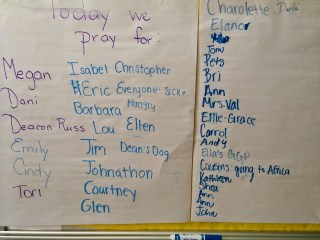 Today we
pray for:
Megan
Dani
Deacon Russ
Emily
Cindy
Tori
Isabel Christopher
Eric Everyone sick
Barbara Hungry
Lou Ellen
Jim Dean's Dog
Johnathon
Courtney
Glen
Charolette
Elanor
Tony
Pets
Bri
Ann
Mrs. Val
Effie-Grace
Carrol
Andy
Ella's GGP
Cousins going to Africa
Kathleen
Shea
Ann
Ann
John